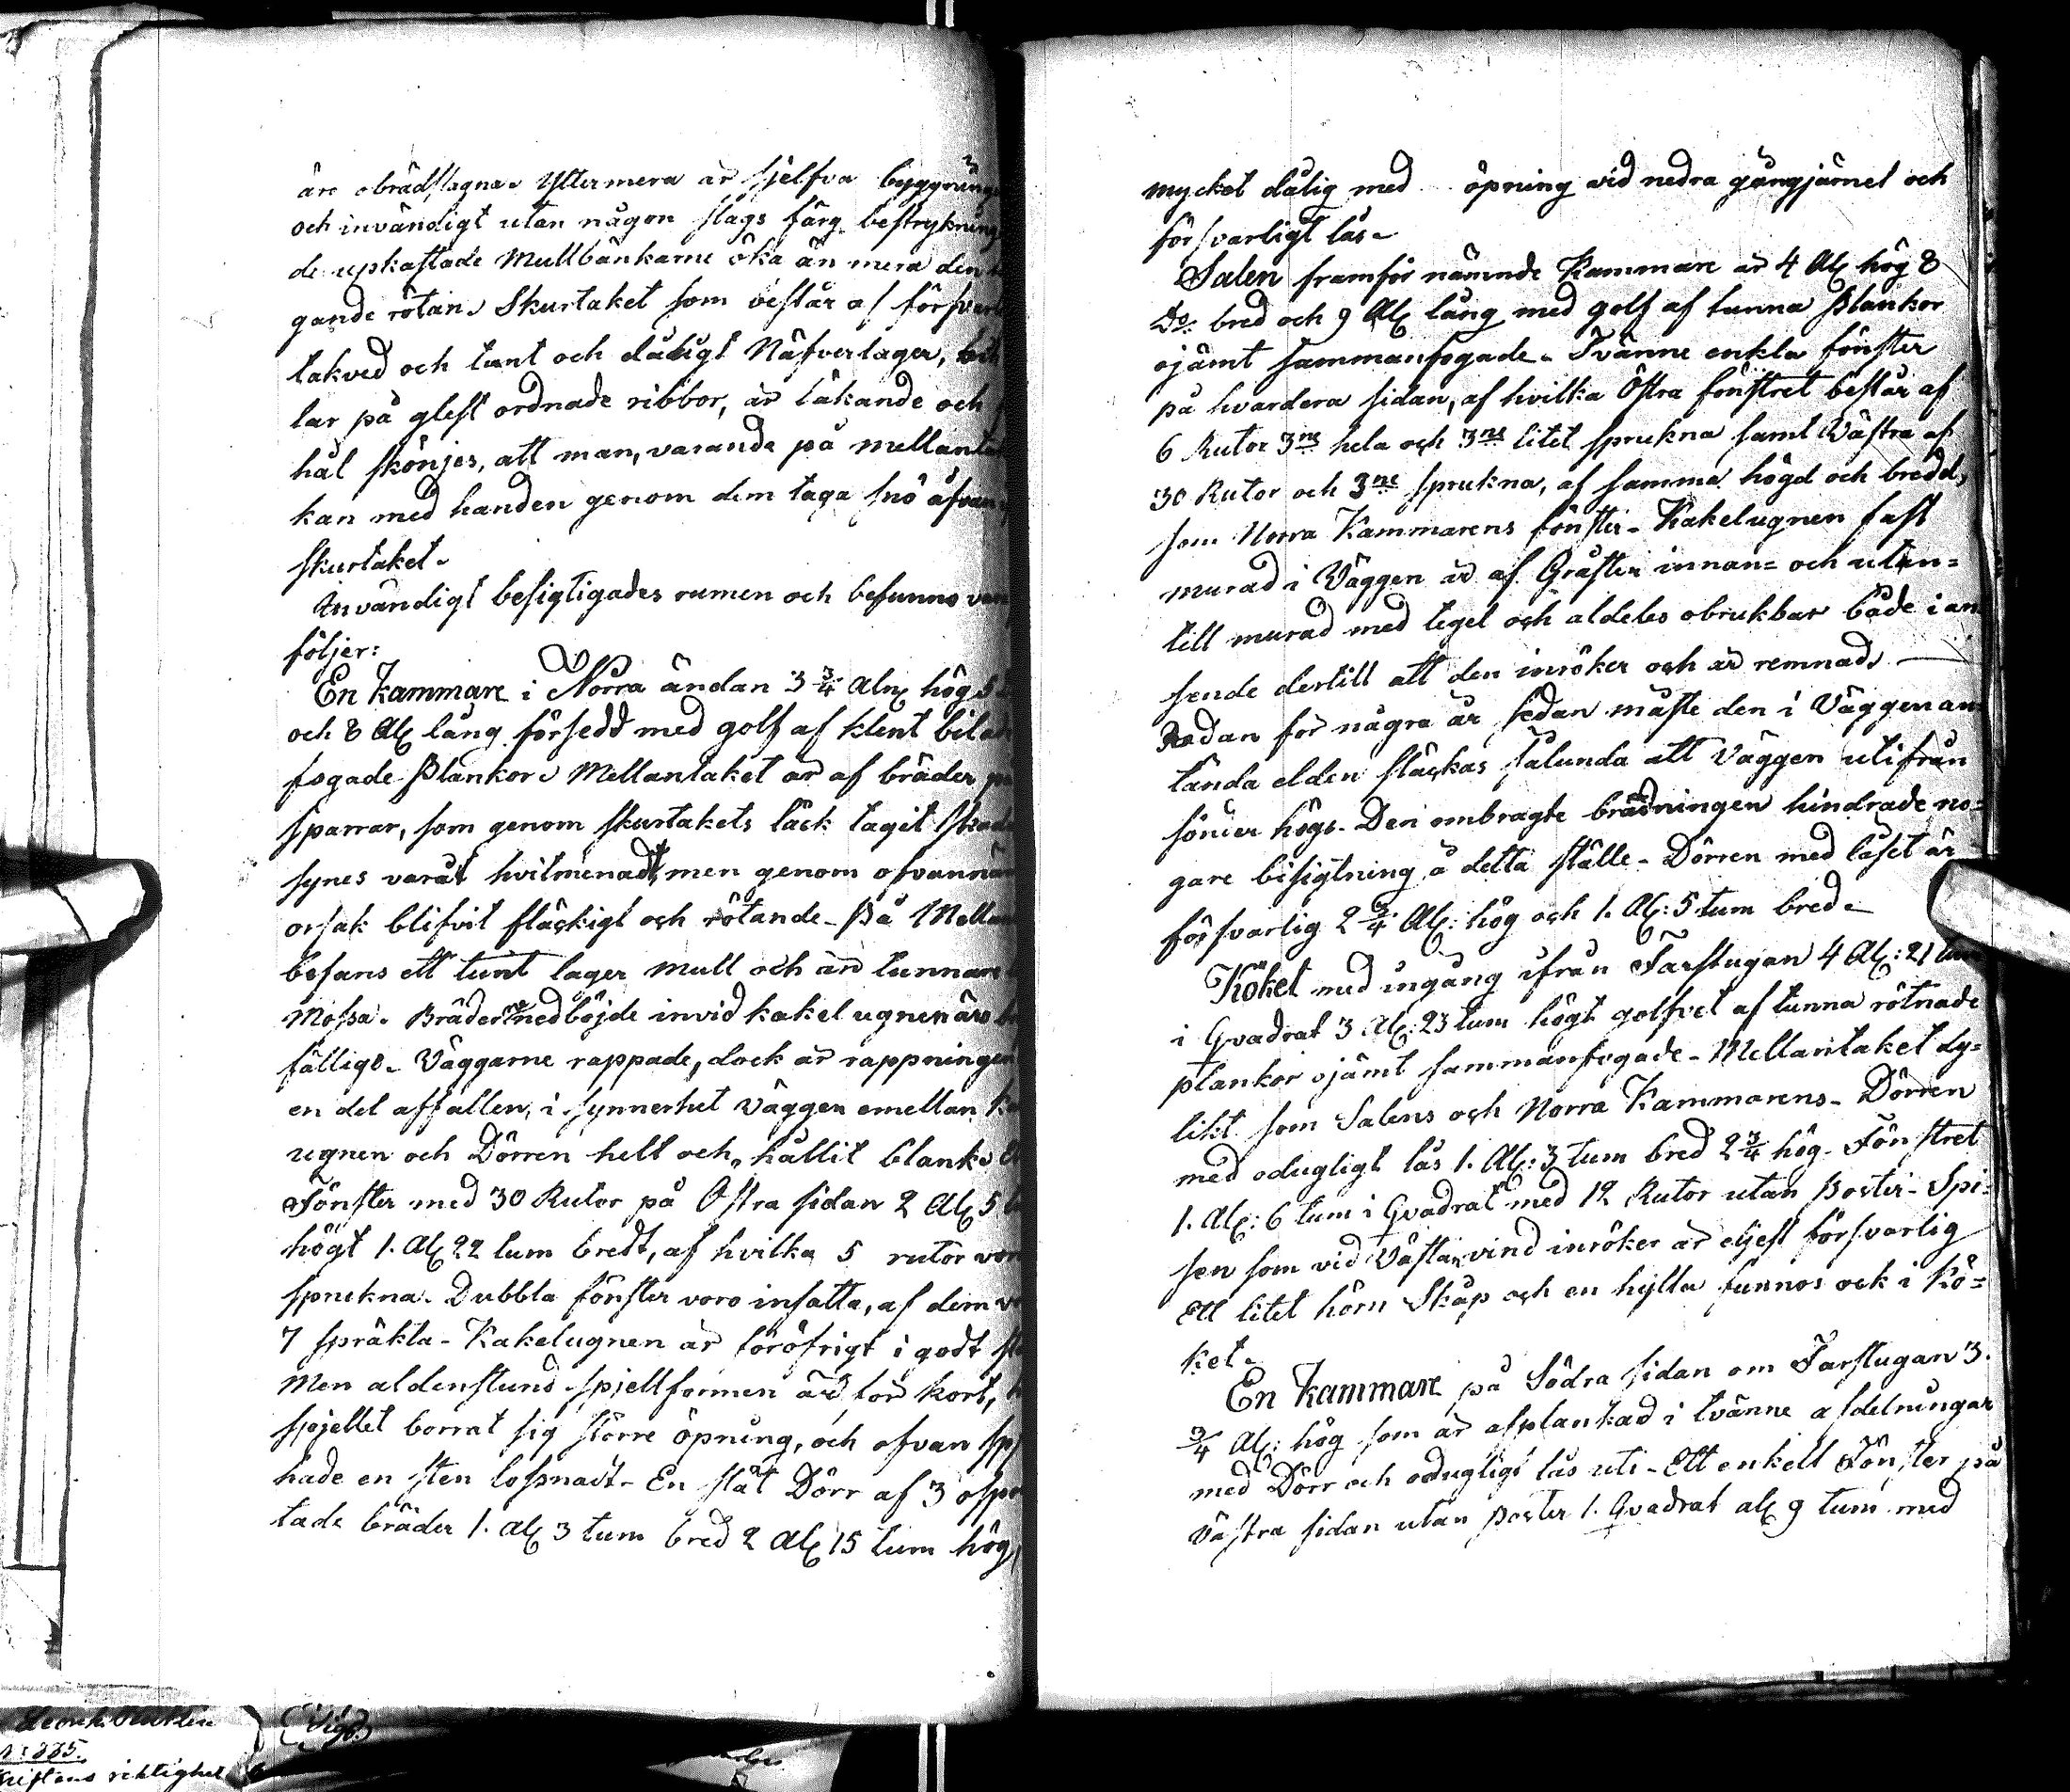 äro obrädslagne. Yttermera är sjelfva byggning
och invändigt utan någon slags färg bestrykning
de upkastade Mullbänkarne öka än mera den
gande rötan. Skurtaket som består af försvarl
takved och tunt och dåligt Näfverlager,
lar på glest ordnade ribbor, är läkande och
hål skönjes, att man, varande på mellanta
kan med handen genom dem taga snö åfvan
skurtaket.
Invändigt besigtigades rumen och befunno
följer:
En Kammare i Norra ändan 3 3/4 Aln hög
och 8 Al lång försedd med golf af klent
fogade Plankor. Mellantaket är af bräder
sparrar, som genom skurtakets läck tagit skad
synes varat hvitmenadt, men genom ofvannäm
orsak blifvit fläckigt och rötande. På Mellan
befans ett tunt lager mull och än tunnare
Mossa. Bräder nedböjde invid kakelugnen äro
fällige. Väggarne rappade, dock är rappningen
en del affallen, i synnerhet Väggen emellan Ka
ugnen och Dörren helt och hållit blank.
Fönster med 30 Rutor på Östra sidan 2 Al 5
högt 1. Al 22 tum bredt, af hvilka 5 rutor voro
spruckna. Dubbla fönster voro insatta, af dem
7 spräkta. Kakelugnen är föröfrigt i godt
Men aldenstund spjellformen är för kort,
spjellet borrat sig större öpning, och ofvan
hade en sten lossnadt. En slät Dörr af 3
tade bräder 1. Al 3 tum bred 2 Al 15 tum hög
mycket dålig med öpning vid nedra gångjärnet och
försvarligt lås.
Salen framför nämnde Kammare är 4 Al hög 8
Do bred och 9 Al lång med golf af tunna Plankor
ojämt sammanfogade. Tvänne enkla fönster
på hvardera sidan, af hvilka Östra fönstret består af
6 Rutor 3ne hela och 3ne litet sprukna samt Västra af
30 Rutor och 3ne sprukna, af samma högd och bredd,
som Norra Kammarens fönster. Kakelugnen fast
murad i Väggen är af Gråsten innan= och utan=
till murad med tegel och aldeles obrukbar både i an
seende dertill att den inröker och är remnad.
Redan för några år sedan måste den i Väggen an=
tända elden släckas sålunda att Väggen utifrån
sönder högs. Den ombragte brädningen hindrade no=
gare besigtning å detta ställe. Dörren med låset är
försvarlig 2 3/4 Al: hög och 1. Al: 5 tum bred.
Köket med ingång ifrån Farstugan 4 Al: 21 tum
i Qvadrat 3 Al: 23 tum högt golfvet af tunna rötnade
plankor ojämt sammanfogade. Mellantaket dy=
likt som Salens och Norra Kammarens. Dörren
med odugligt lås 1. Al: 3 tum bred 2 3/4 hög. Fönstret
1. Al: 6 tum i Qvadrat med 12 Rutor utan Poster. Spi=
sen som vid Västan vind inröker är eljest försvarlig
Ett litet hörn Skåp och en hylla funnos ock i Kö=
ket.
En Kammare på Södra sidan om Farstugan 3.
3/4 Al: hög som är afplankad i tvänne afdelningar
med Dörr och odugligt lås uti. Ett enkelt Fönster på
Västra sidan utan Poster 1. Qvadrat al 9 tum med